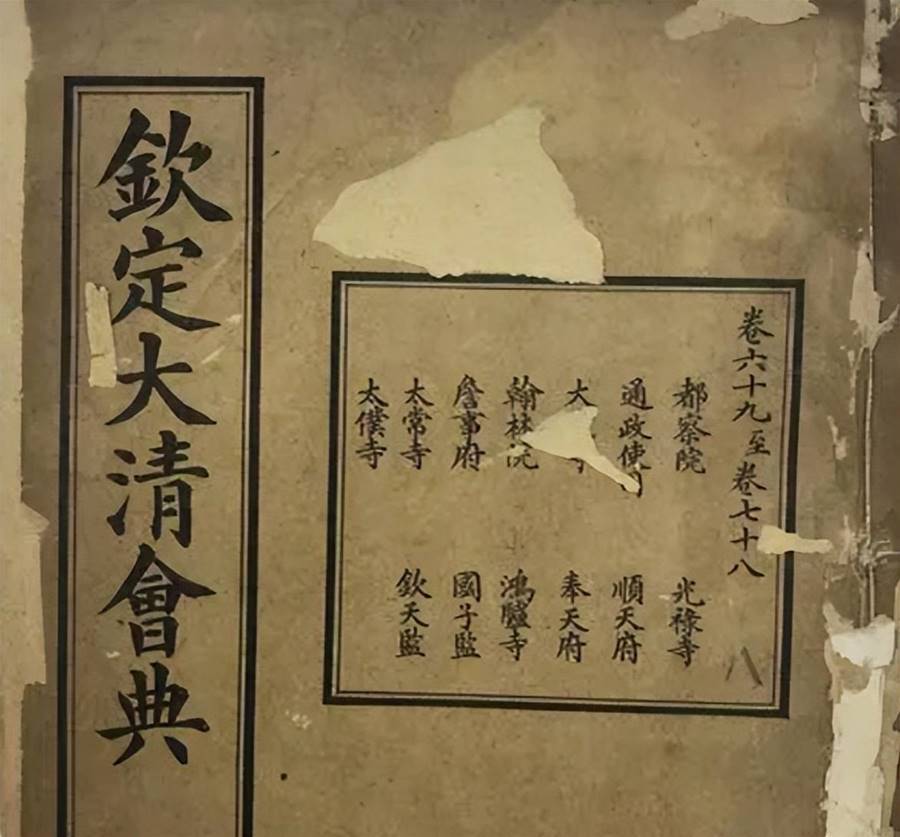 欽定大清會典
卷六十九至卷七十八
都察院
通政使
大
翰林院
詹事府
太常寺
太僕寺
光祿寺
順天府
奉天府
鴻臚寺
國子監
欽天監
八